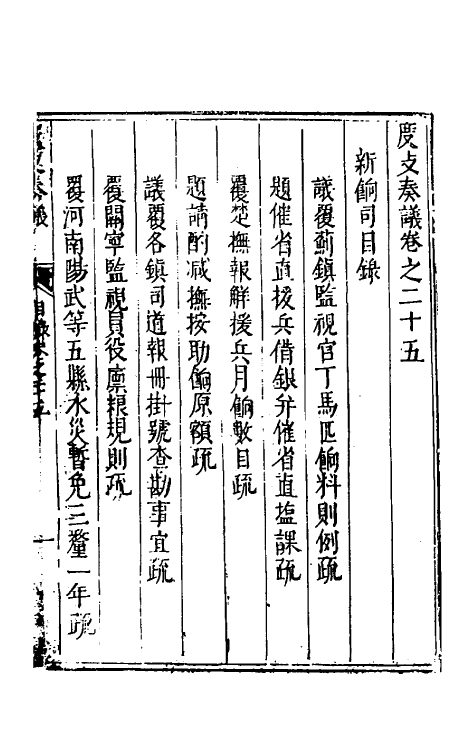 度支奏議卷之二十五
新餉司目錄
議覆薊鎮監視官丁馬匹餉料則例疏
題催省直援兵借銀并催省直塩課疏
覆楚撫報觧援兵月餉數目疏
題請酌減撫按助餉原額疏
議覆各鎮司道報冊掛號查勘事宜疏
覆關寧監視員役廩糧規則疏
覆河南陽武等五縣水災暫免三釐一年疏
度支奏議
目錄卷之二十五
一